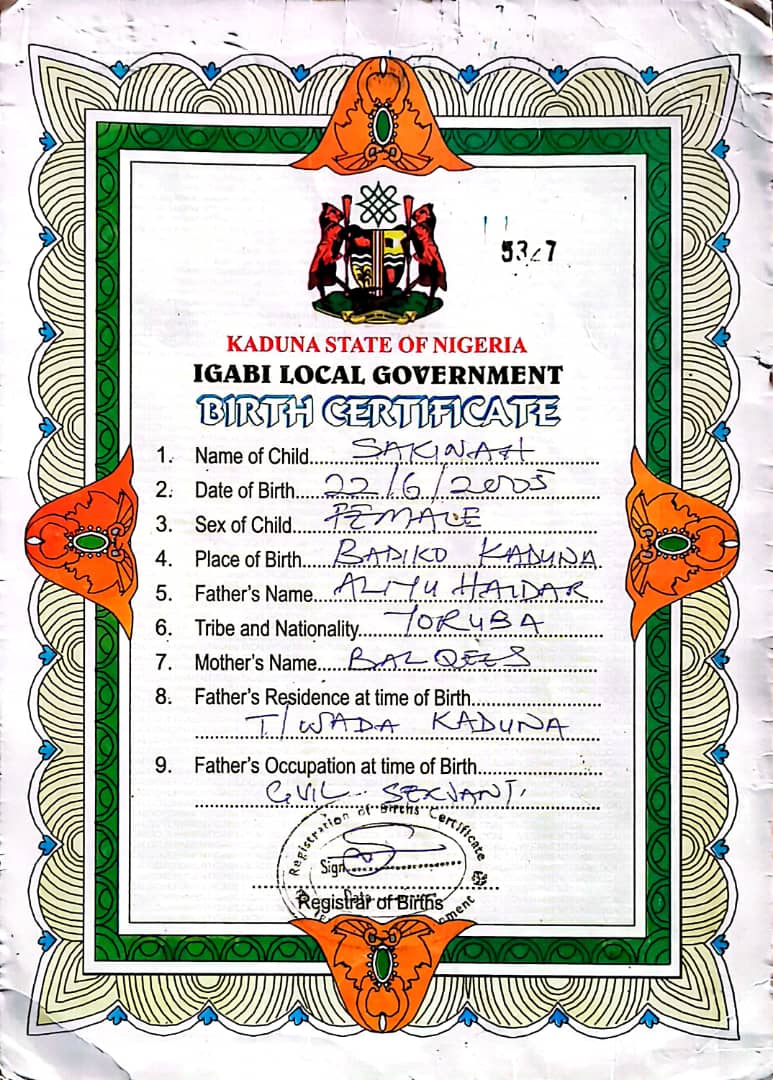 5327
KADUNA STATE OF NIGERIA
IGABI LOCAL GOVERNMENT
BIRTH CERTIFICATE
1. Name of Child SAKINAH
2. Date of Birth 22/6/2005
3. Sex of Child FEMALE
4. Place of Birth BADIKO KADUNA
5. Father's Name ALIYU HAIDAR
6. Tribe and Nationality YORUBA
7. Mother's Name BALQEES
8. Father's Residence at time of Birth
T/WADA KADUNA
9. Father's Occupation at time of Birth
CIVIL SERVANT
Registration of Births Certificate
Sign
Registrar of Births